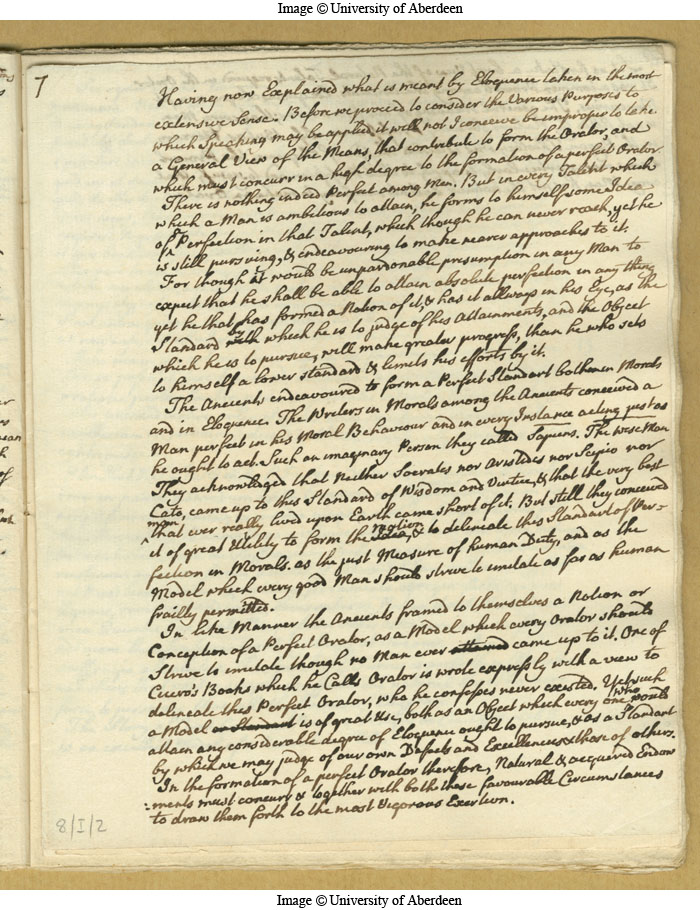 Image © University of Aberdeen
7
Having now Explained what is meant by Eloquence taken in the most
extensive Sense. Before we proceed to consider the Various Purposes to
which Speaking may be applied, it will not I conceive be improper to take
a General View of the Means, that contribute to form the Orator, and
which must concurr in a high degree to the formation of a perfect Orator
There is nothing indeed Perfect among Men. But in every Talent which
which a Man is ambitious to attain, he forms to himself some Idea
of Perfection in that Talent, which though he can never reach, yet he
is still pursuing, & endeavouring to make nearer approaches to it.
For though it would be unpardonable presumption in any Man to
expect that he shall be able to attain absolute perfection in any thing
yet he that has formed a Notion of it & has it allways in his Eye, as the
Standard by which he is to judge of his Attainments, and the Object
which he is to pursue, will make greater progress, than he who sets
to himself a lower standard & limits his efforts by it.
The Ancients endeavoured to form a Perfect Standart both in Morals
and in Eloquence. The Writers in Morals among the Ancients conceived a
Man perfect in his Moral Behaviour and in every Instance acting just as
he ought to act. Such an imaginary Person they called Sapiens. The wise Man
They acknowledged that Neither Socrates nor Aristides nor Scipio nor
Cato, came up to this Standard of Wisdom and Virtue, & that the very best
man
that ever really lived upon Earth came short of it. But still they conceived
it of great Utility to form the notion, & to deliniate this Standart of Per=
fection in Morals. as the just Measure of human Duty, and as the
Model which every good Man should strive to imitate as far as human
frailty permitted.
In like Manner the Ancients framed to themselves a Notion or
Conception of a Perfect Orator, as a Model which every Orator should
Strive to imitate though no Man ever came up to it. One of
Cicero's Books which he Calls Orator is wrote expressly with a view to
delineate this Perfect Orator, who he confesses never existed. Yet such
a Model or Standart is of great Use, both as an Object which every one who would
attain any considerable degree of Eloquence ought to pursue, & as a Standart
by which we may judge of our own Defects and Excellencies & those of others.
In the formation of a perfect Orator therefore, Natural & acquired Endow
=ments must concurr & together with both these favourable Circumstances
to draw them forth to the most Vigorous Exertion.
8/I/2
Image © University of Aberdeen